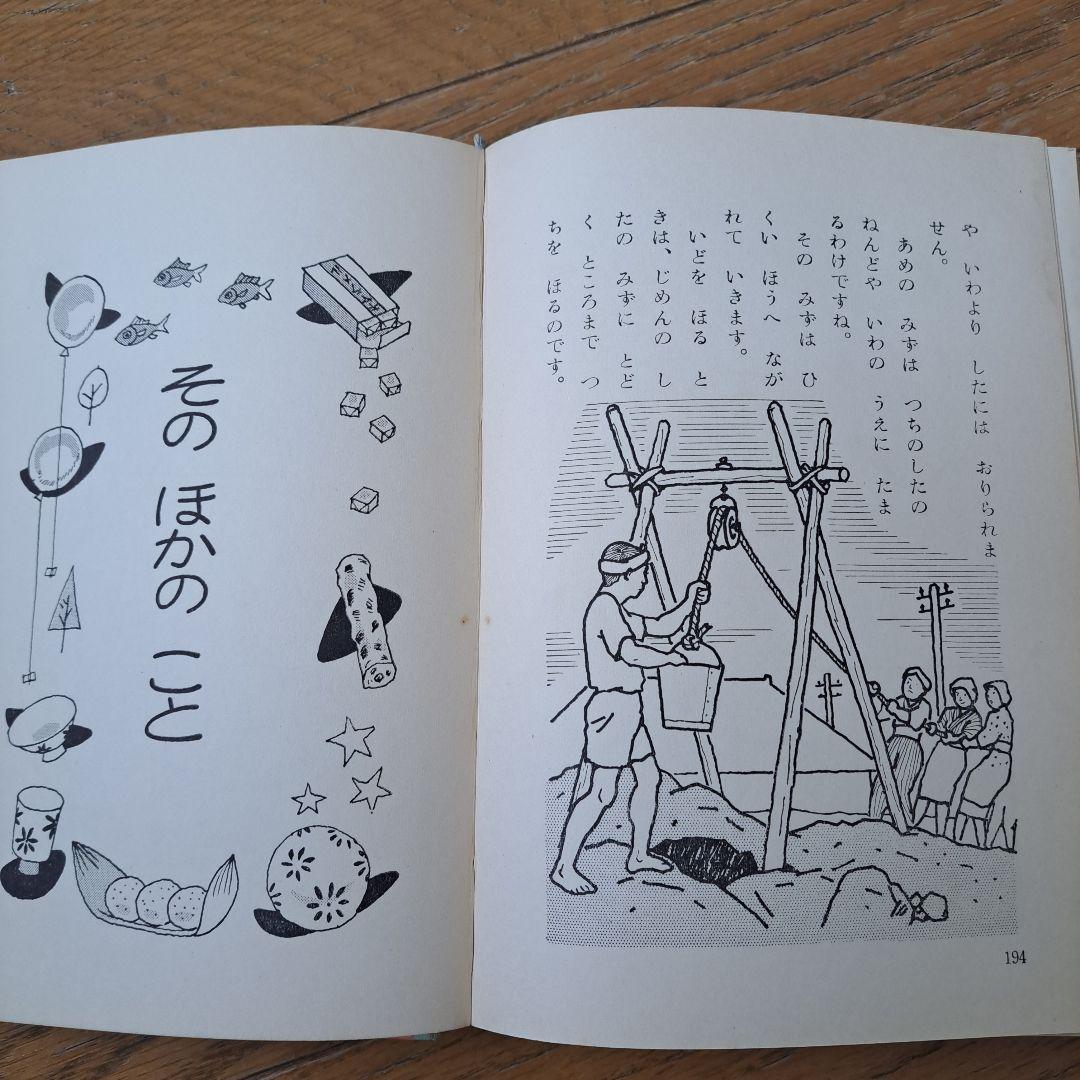 や　いわより　したには　おりられま
せん。
あめの　みずは　つちのしたの
ねんどや　いわの　うえに　たま
るわけですね。
その　みずは　ひ
くい　ほうへ　なが
れて　いきます。
いどを　ほる　と
きは、じめんの　し
たの　みずに　とど
く　ところまで　つ
ちを　ほるのです。
194
その　ほかの　こと